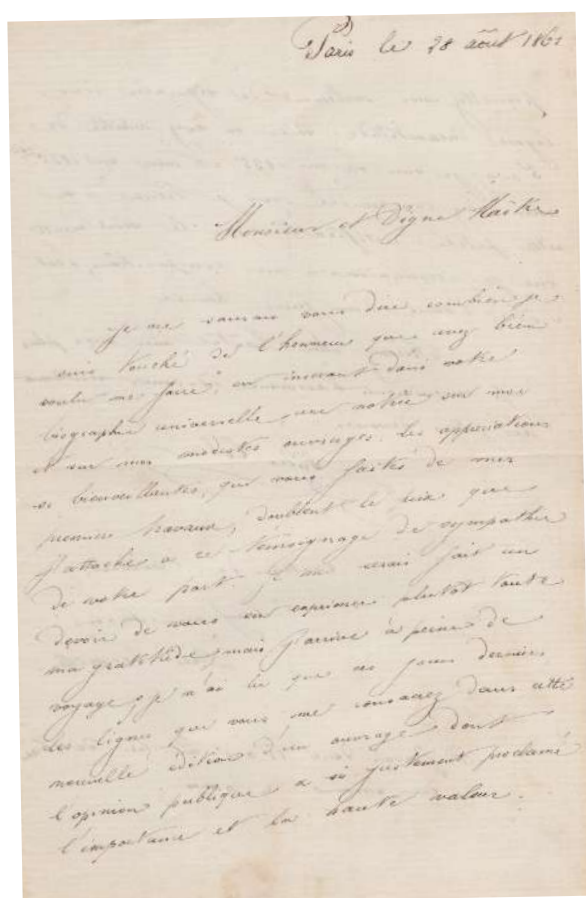 Paris le 28 août 1861
Monsieur et Digne Maître
Je ne saurais vous dire combien je
suis touché de l'honneur que avez bien
voulu me faire, en insérant dans votre
biographie universelle une notice sur moi
et sur mes modestes ouvrages. les appréciations
si bienveillantes, que vous faites de mes
premiers travaux, doublent le prix que
j'attache à ce témoignage de sympathie
de votre part. Je me serais fait un
devoir de vous en exprimer plutôt toute
ma gratitude, mais j'arrive à peine de
voyage, je n'ai lu que ces jours derniers
les lignes que vous me consacrez dans cette
nouvelle édition d'un ouvrage dont
l'opinion publique a si justement proclamé
l'importance et la haute valeur.